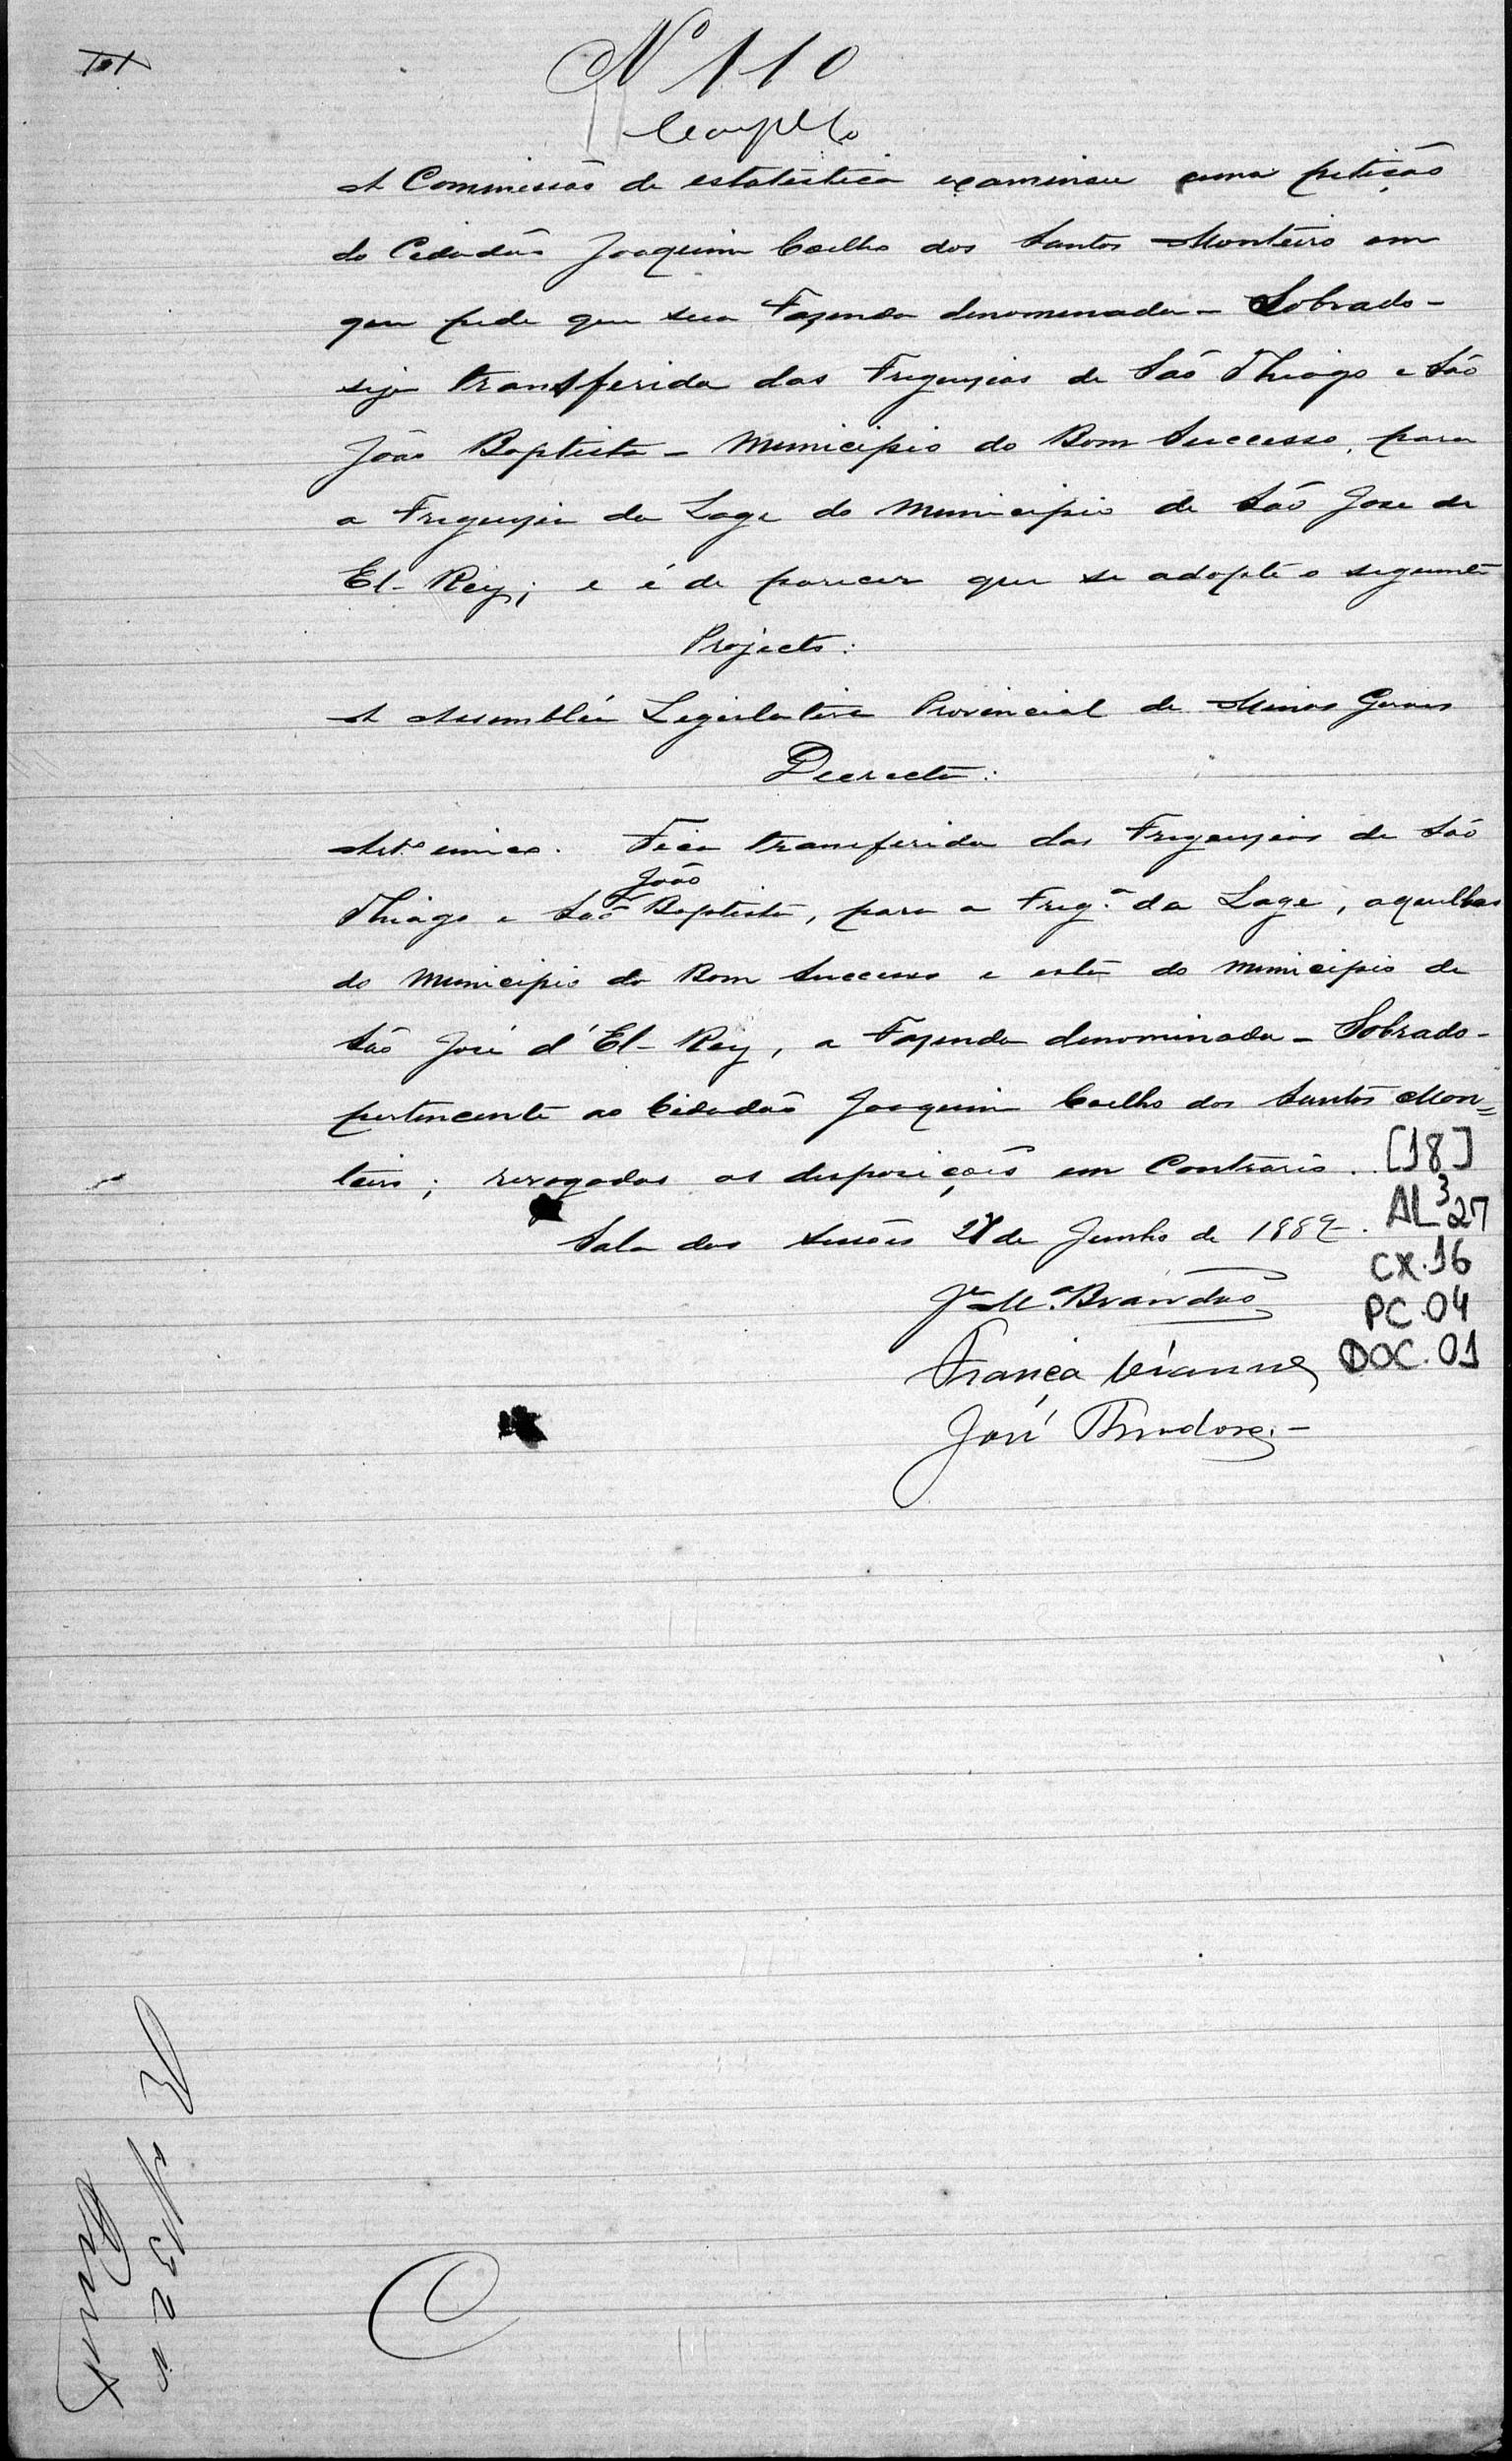 Nº 110
Completo
A Commissão de estatistica examinou uma petição
do Cidadão Joaquim Coelho dos Santos Monteiro em
que pede que sua Fazenda denominada - Sobrado -
seja transferida das Freguezias de São Thiago e São
João Baptista - Municipio do Bom Successo, para
a Freguezia da Lage do Municipio de São Jose de
El-Rey; e é de parecer que se adopte o seguinte
Projecto:
A Assembléa Legislativa Provincial de Minas Geraes
Decreta:
Artº unico. Fica transferida das Freguezias de São
Thiago e São João Baptista, para a Fregª da Lage, aquellas
do Municipio do Bom Successo e esta do Municipio de
São José d'El-Rey, a Fazenda denominada - Sobrado -
pertencente ao Cidadão Joaquim Coelho dos Santos Mon=
teiro; revogadas as disposições em Contrario.
Sala das sessões 27 de Junho de 1889.
Jº Mª Brandão
França Vianna
José Theodoro. -
[18]
AL³27
CX.16
PC.04
DOC.01